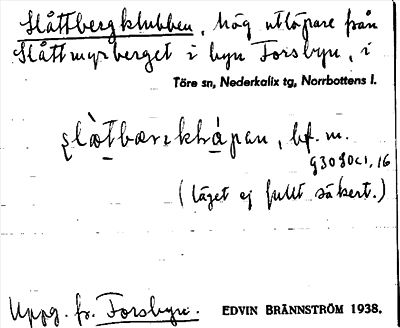 Slåttbergklubben, hög utlöpare från
Slåttmyrberget i byn Forsbyn, i
Töre sn, Nederkalix tg, Norrbottens l.
bf. m.
(läget ej fullt säkert.)
Uppg. fr. Forsbyn. EDVIN BRÄNNSTRÖM 1938.